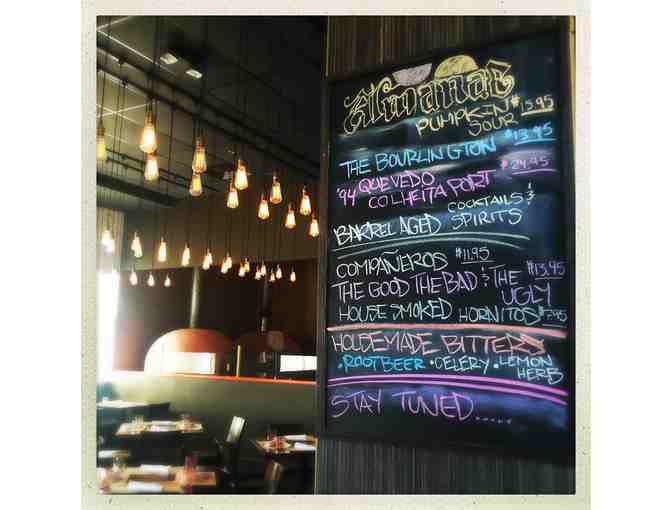 Almanac
PUMPKIN $15.95
SOUR
THE BOURLINGTON $13.95
'94 QUEVEDO $24.95
COLHEITA PORT
COCKTAILS &
BARREL AGED SPIRITS
COMPAÑEROS $11.95
THE GOOD THE BAD & THE $13.95
UGLY
HOUSE SMOKED HORNITOS $7.95
HOUSEMADE BITTERS
•ROOTBEER •CELERY •LEMON
HERB
STAY TUNED.....